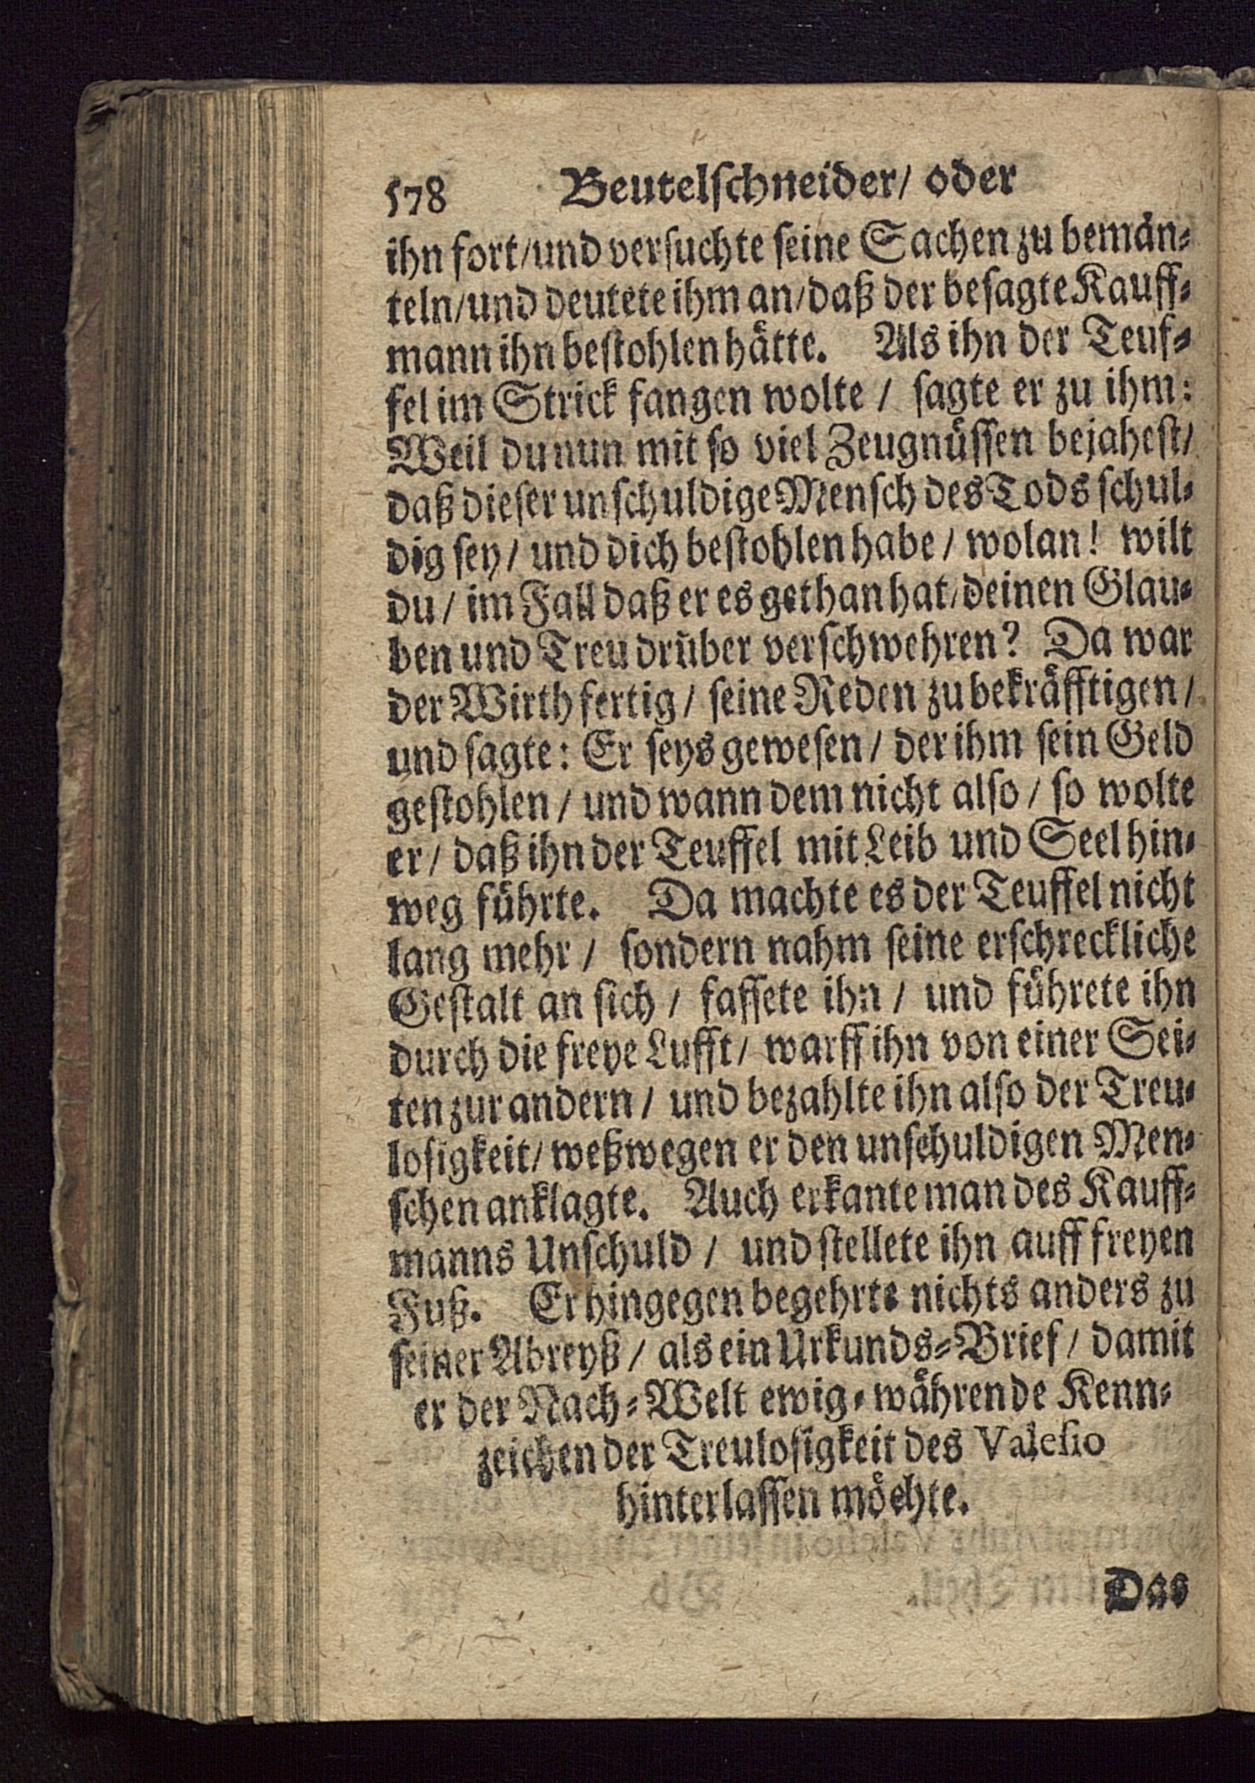 578 Beutelschneider/ oder
ihn fort/und versuchte seine Sachen zu bemän-
teln/und deutete ihm an/daß der besagte Kauff-
mann ihn bestohlen hätte. Als ihn der Teuf-
fel im Strick fangen wolte / sagte er zu ihm:
Weil du nun mit so viel Zeugnüssen bejahest/
daß dieser unschuldige Mensch des Tods schul-
dig sey/ und dich bestohlen habe/ wolan! wilt
du/ im Fall daß er es gethan hat/deinen Glau-
ben und Treu drüber verschwehren? Da war
der Wirth fertig/ seine Reden zu bekräfftigen/
und sagte: Er seys gewesen/ der ihm sein Geld
gestohlen/ und wann dem nicht also/ so wolte
er/ daß ihn der Teuffel mit Leib und Seel hin-
weg führte. Da machte es der Teuffel nicht
lang mehr/ sondern nahm seine erschreckliche
Gestalt an sich / fassete ihn / und führete ihn
durch die freye Lufft/ warff ihn von einer Sei-
ten zur andern/ und bezahlte ihn also der Treu-
losigkeit/ weßwegen er den unschuldigen Men-
schen anklagte. Auch erkante man des Kauff-
manns Unschuld / und stellete ihn auff freyen
Fuß. Er hingegen begehrte nichts anders zu
seiner Abreyß/ als ein Urkunds-Brief/ damit
er der Nach-Welt ewig-währende Kenn-
zeichen der Treulosigkeit des Valesio
hinterlassen möchte.
Das